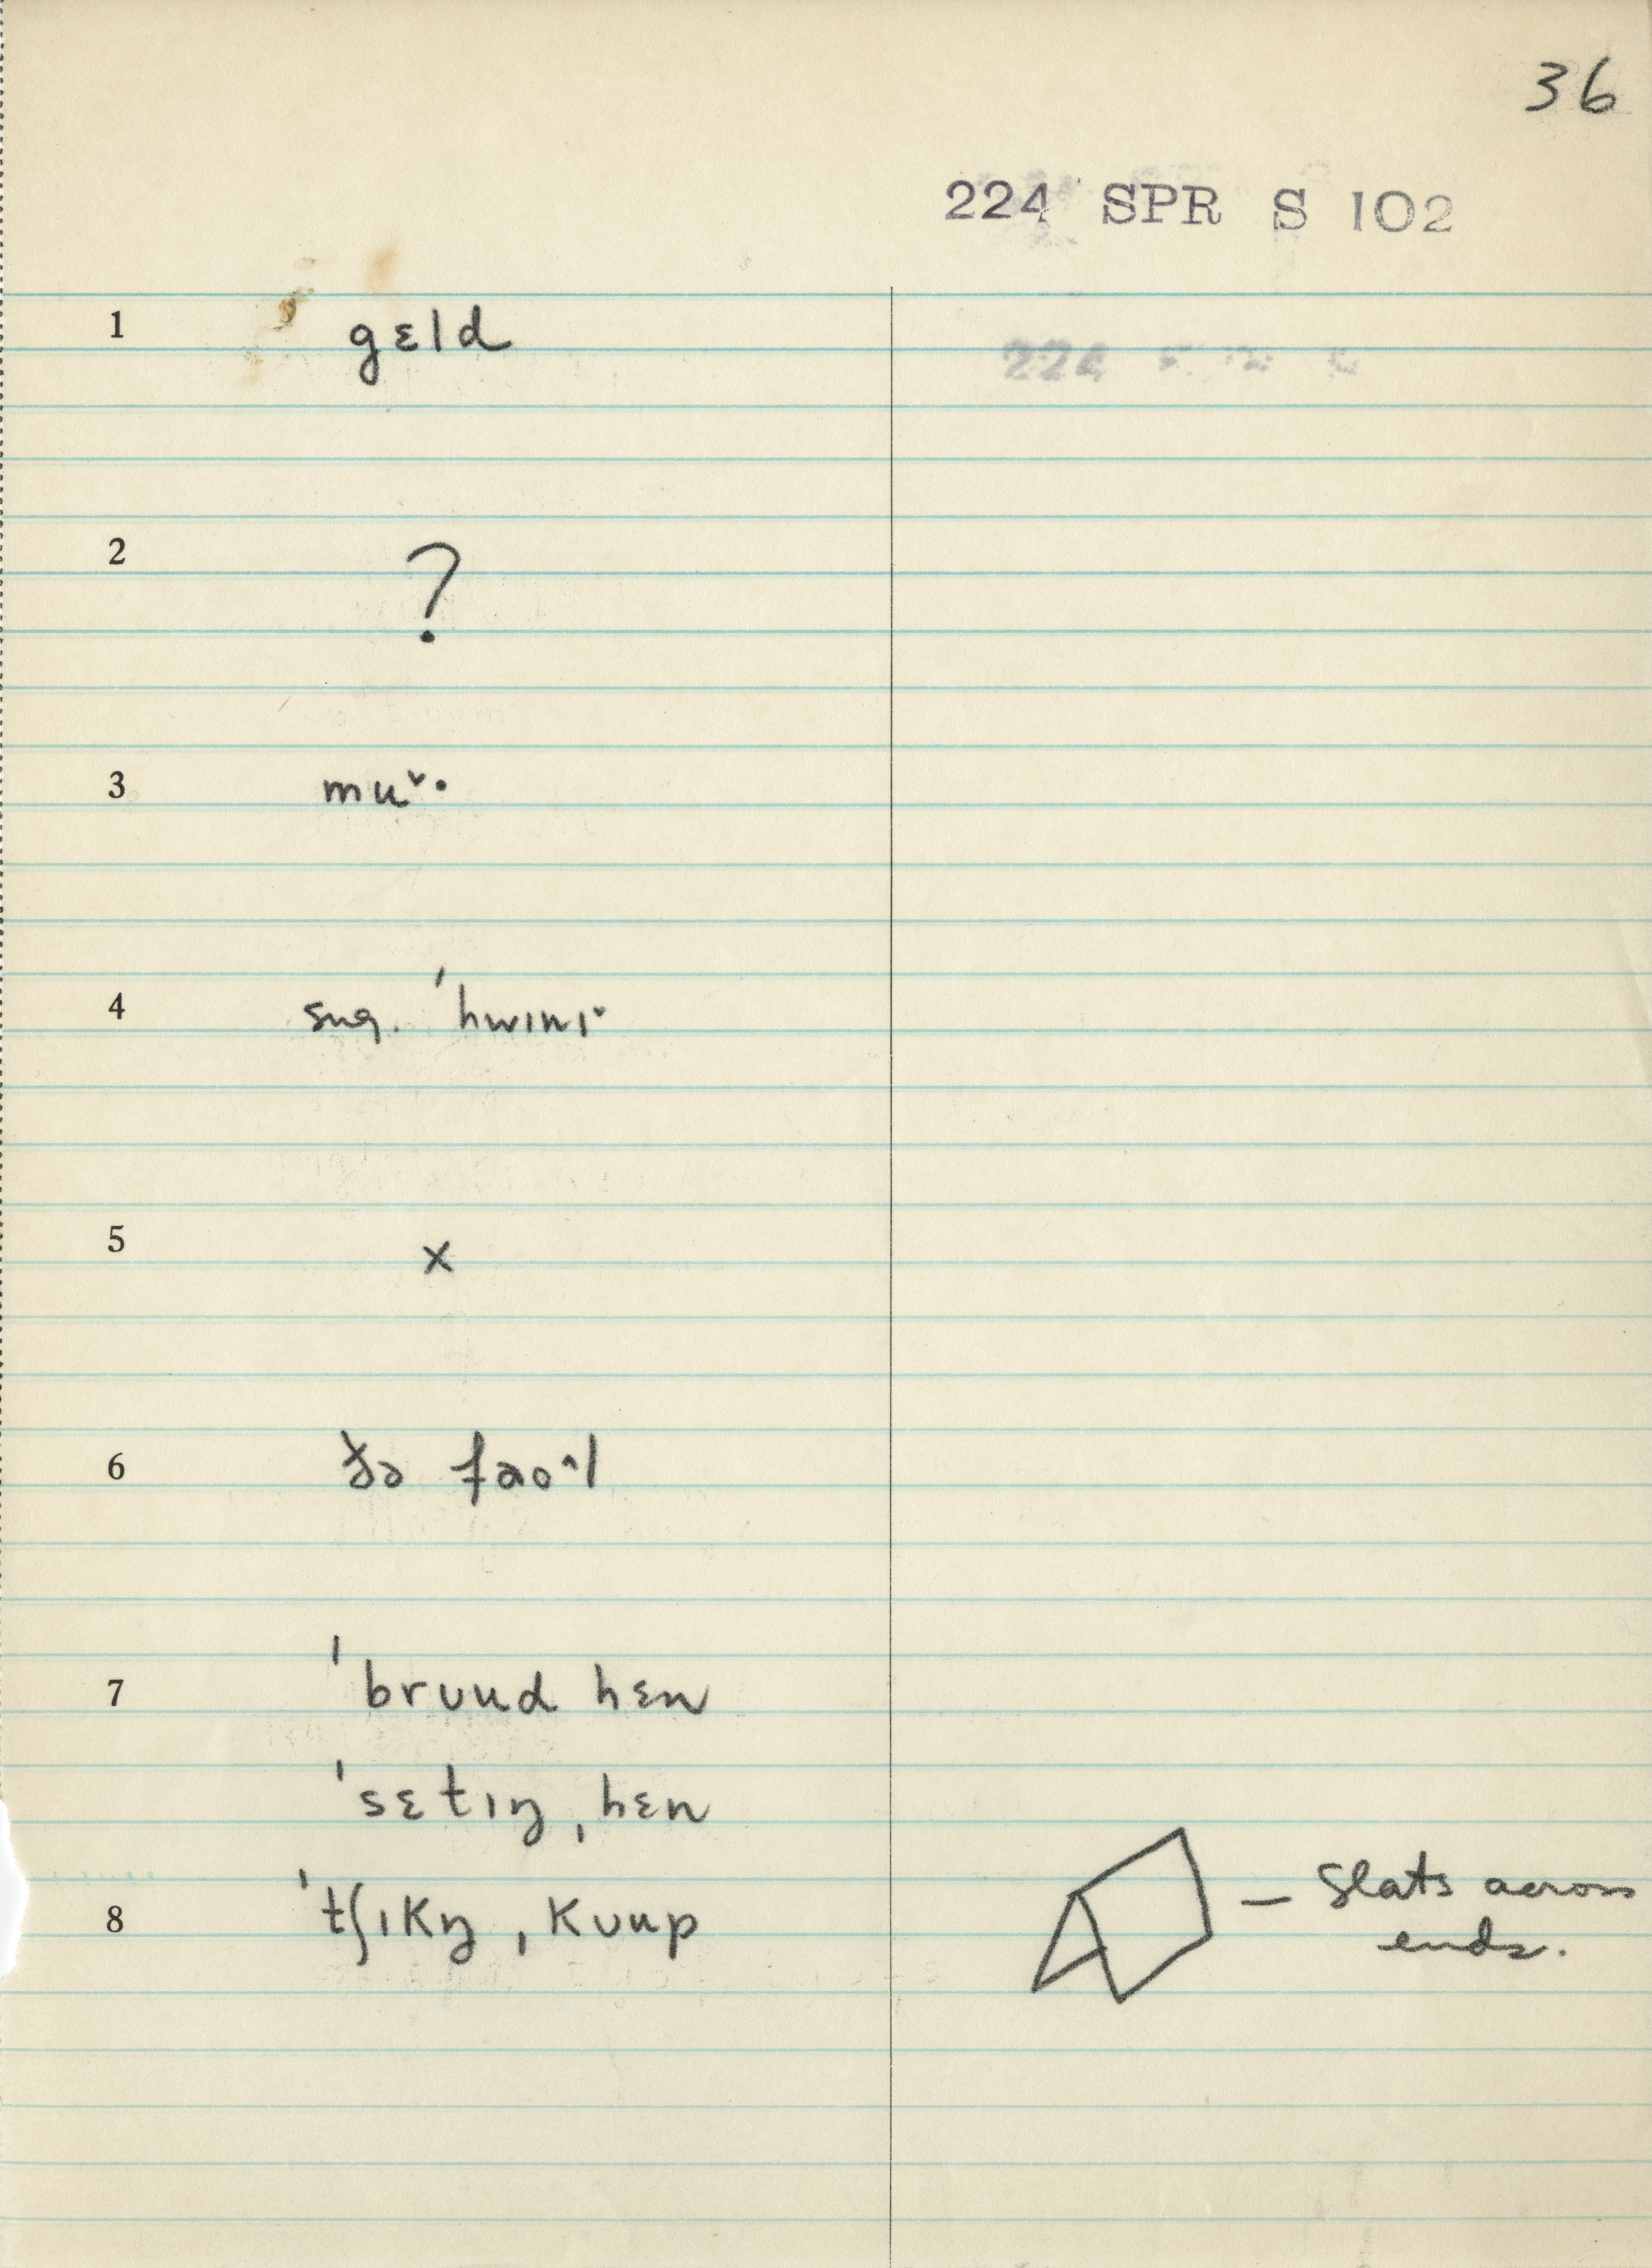 36
224 SPR S 102
1 gɛld
2 ?
3 muˇ·
4 sug. ˈhwɪnɪˇ
5 x
6 ðə faoˆl
7 ˈbrʊud hɛn
ˈsɛtɪŋ ˌhɛn
8 ˈtʃɪkŋ ˌkʊup
– Slats across
ends.